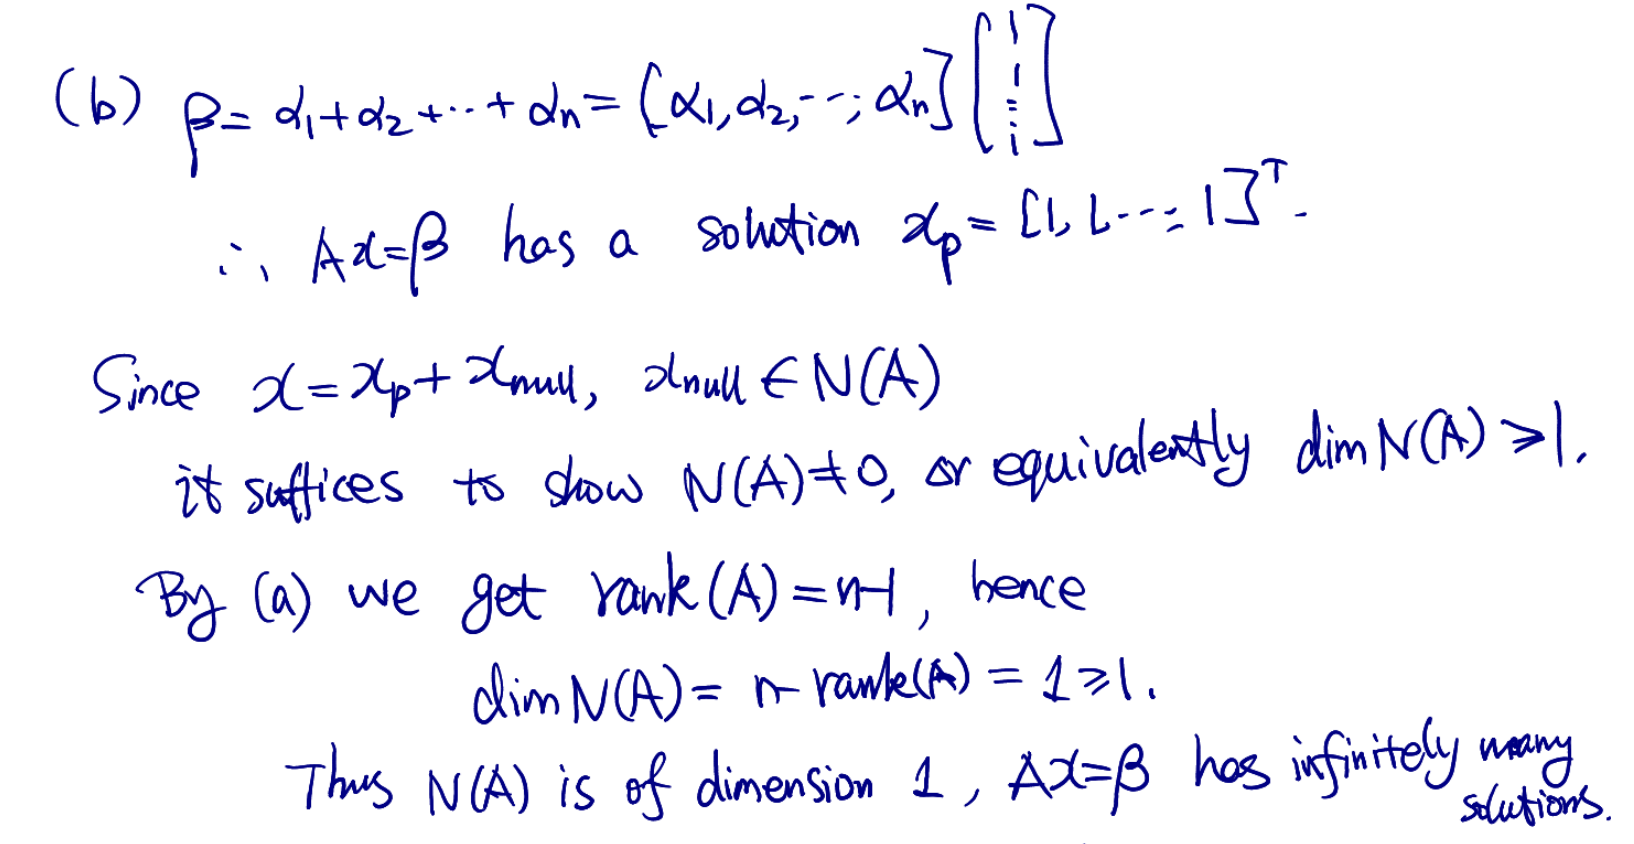 (b) β = α₁+α₂+⋯+αₙ = [α₁, α₂, ⋯, αₙ] [1 1 ⋮ 1]
∴ Ax=β has a solution xₚ = [1, 1, ⋯, 1]ᵀ.
Since x = xₚ + x_null, x_null ∈ N(A)
it suffices to show N(A)≠0, or equivalently dim N(A) ≥ 1.
By (a) we get rank(A) = n-1, hence
dim N(A) = n - rank(A) = 1 ≥ 1.
Thus N(A) is of dimension 1, Ax=β has infinitely many
solutions.